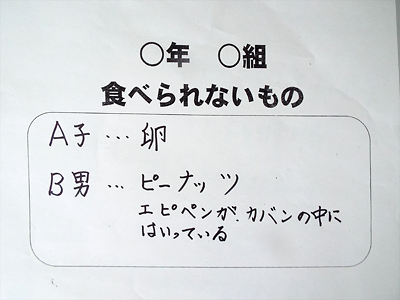 〇年　〇組
食べられないもの
A子 … 卵
B男 … ピーナッツ
エピペンが、カバンの中に
はいっている